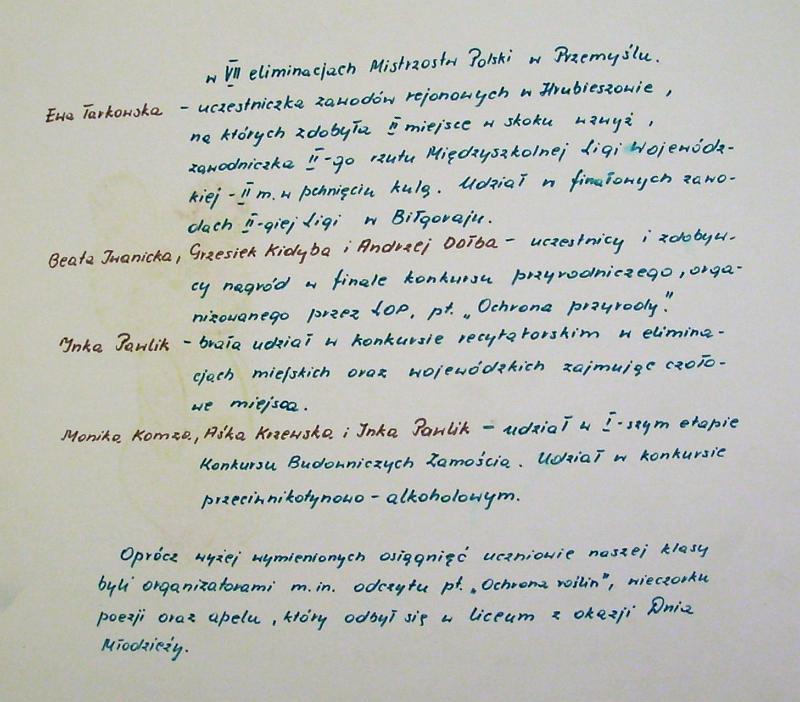 w VII eliminacjach Mistrzostw Polski w Przemyślu.
Ewa Tarkowska - uczestniczka zawodów rejonowych w Hrubieszowie,
na których zdobyła II miejsce w skoku wzwyż,
zawodniczka II-go rzutu Międzyszkolnej Ligi Wojewódz-
kiej - II m. w pchnięciu kulą. Udział w finałowych zawo-
dach II-giej Ligi w Biłgoraju.
Beata Iwanicka, Grzesiek Kidyba i Andrzej Dołba - uczestnicy i zdobyw-
cy nagród w finale konkursu przyrodniczego, orga-
nizowanego przez LOP, pt. „Ochrona przyrody".
Inka Pawlik - brała udział w konkursie recytatorskim w elimina-
cjach miejskich oraz wojewódzkich zajmując czoło-
we miejsca.
Monika Komza, Aśka Krzewska i Inka Pawlik - udział w I-szym etapie
Konkursu Budowniczych Zamościa. Udział w konkursie
przeciwnikotynowo - alkoholowym.
Oprócz wyżej wymienionych osiągnięć uczniowie naszej klasy
byli organizatorami m.in. odczytu pt. „Ochrona roślin", wieczorku
poezji oraz apelu, który odbył się w liceum z okazji Dnia
Młodzieży.